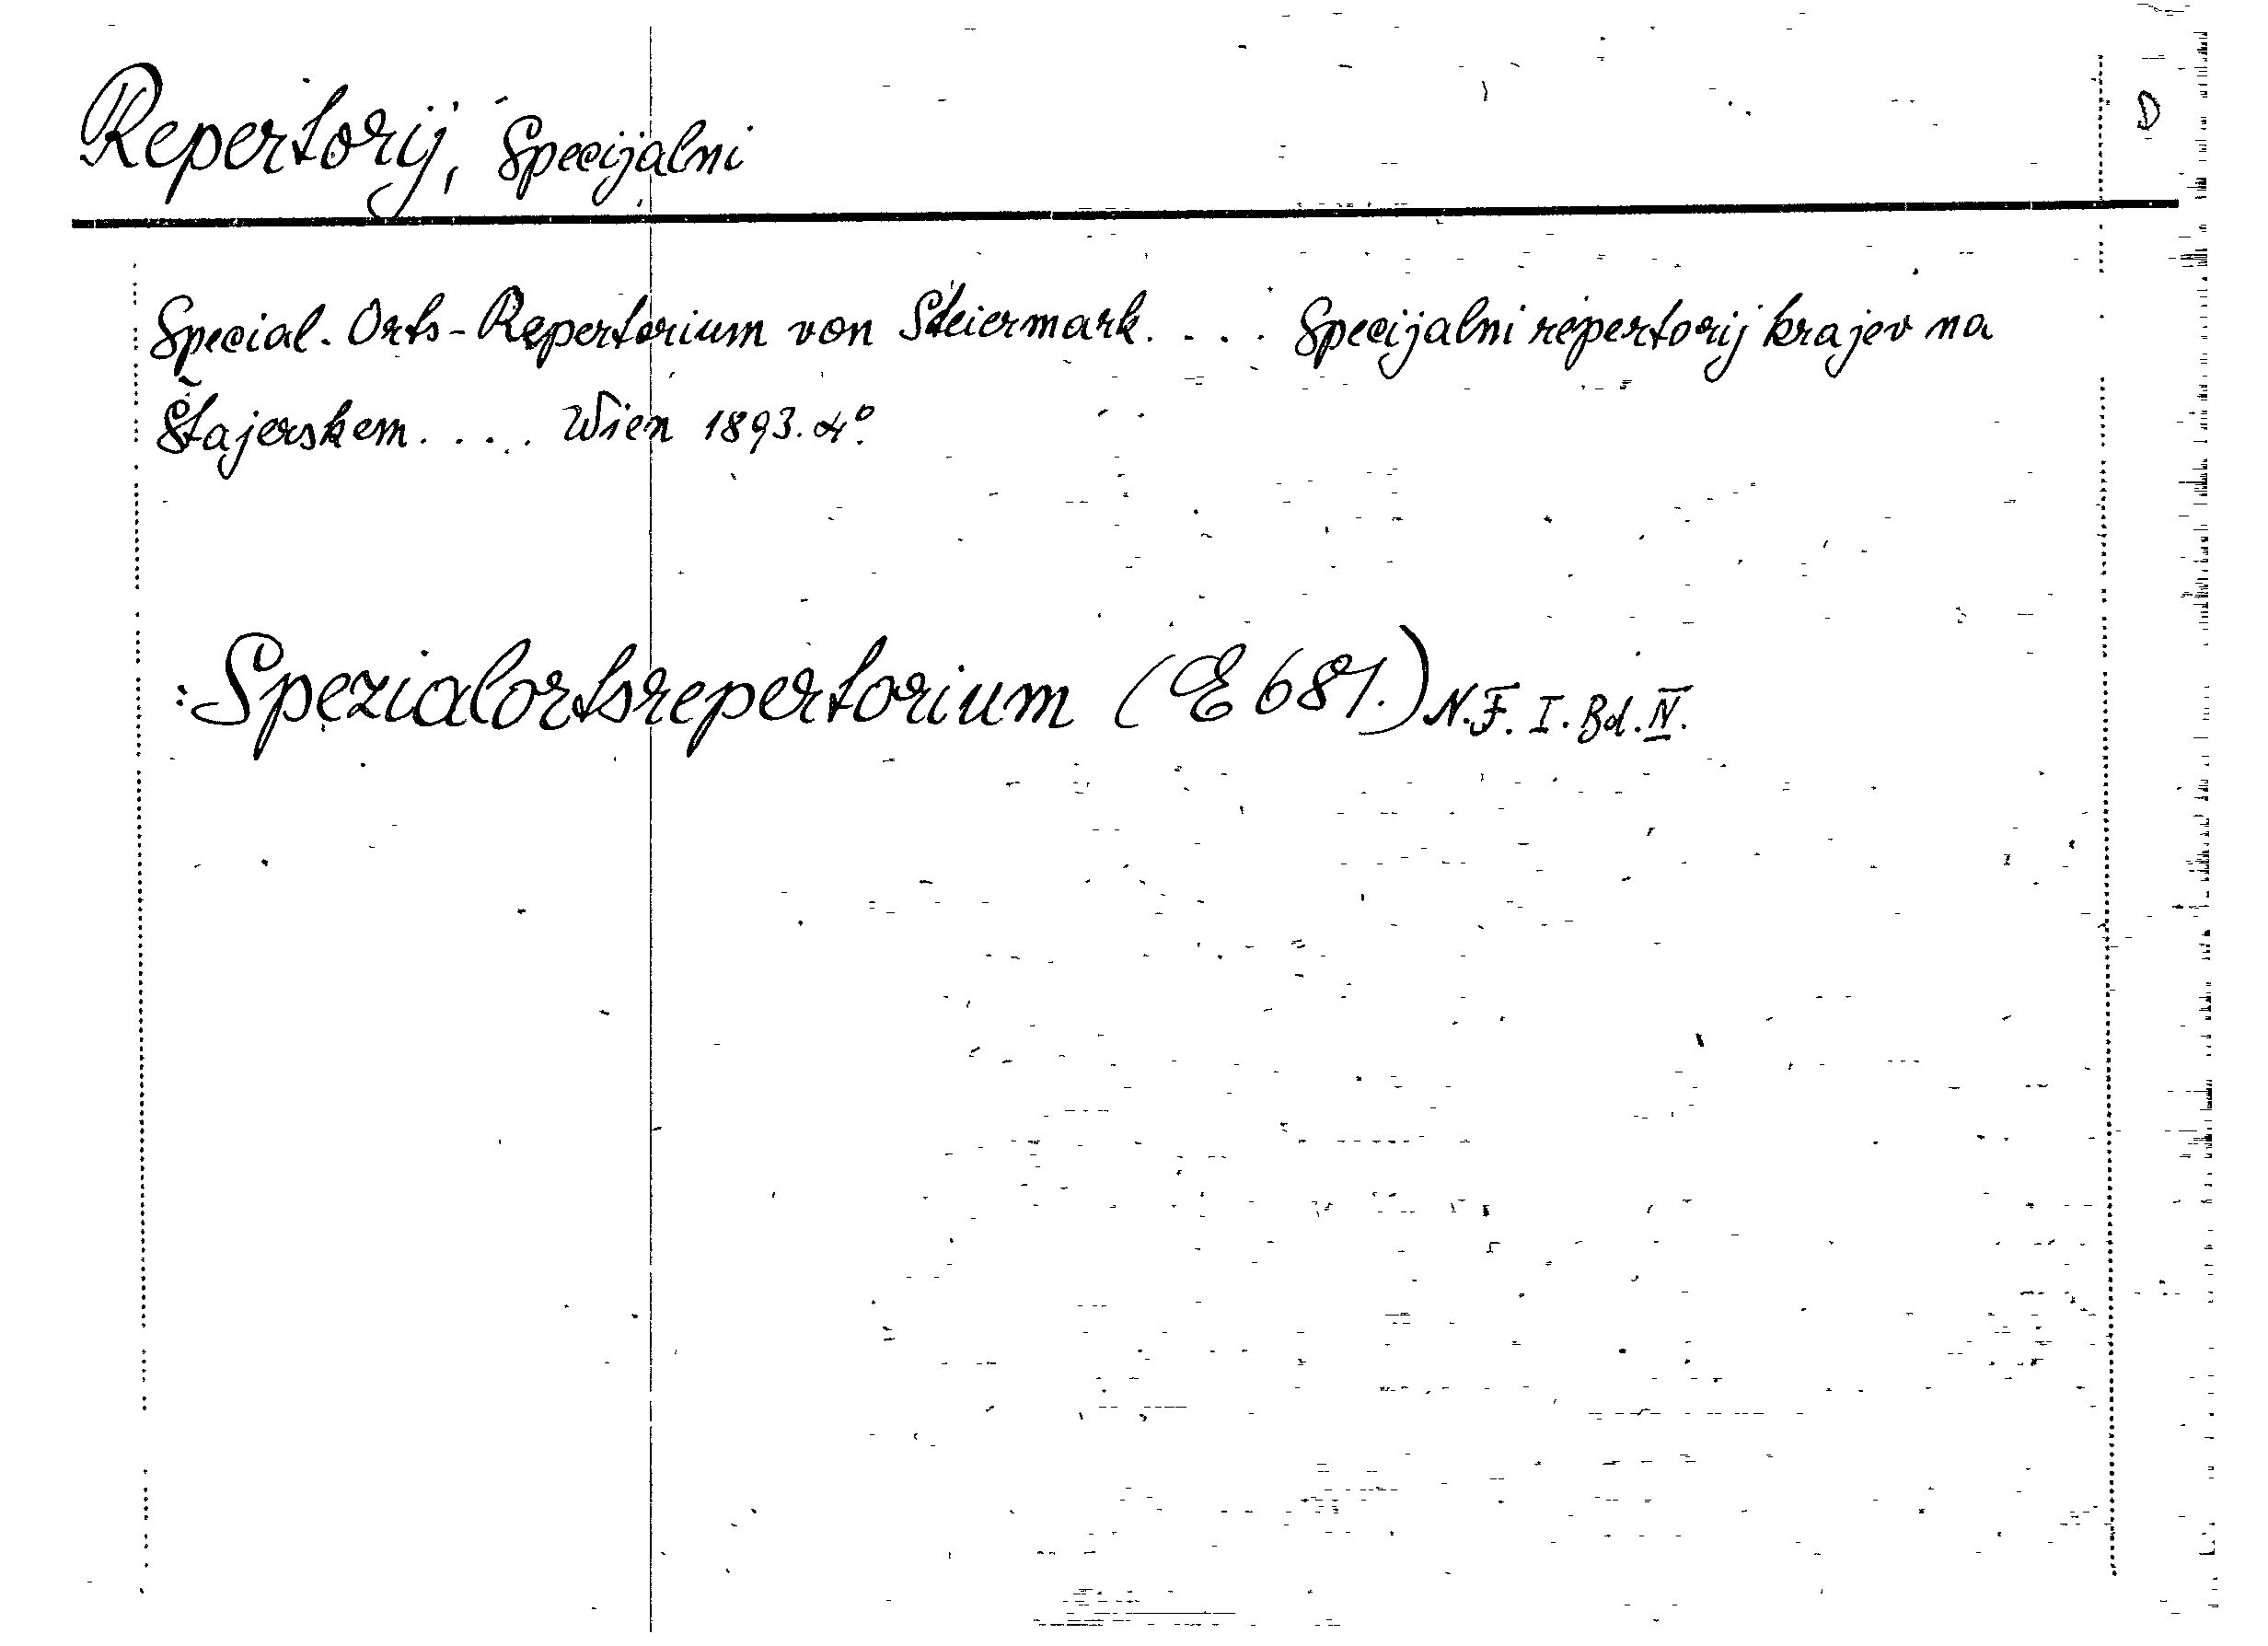 Repertorij, Specijalni
D
Special-Orts-Repertorium von Steiermark.... Specijalni repertorij krajev na
Štajerskem..... Wien 1893. 4°.
:Spezialortsrepertorium (E 681.) N.F. I. Bd. IV.